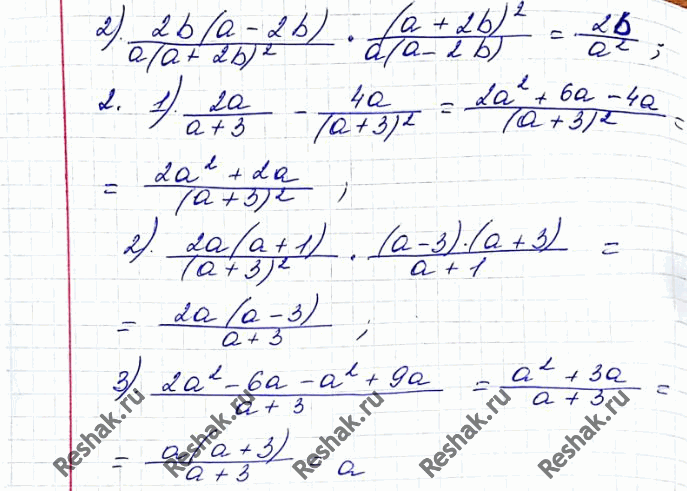 2). 2b(a - 2b)/a(a + 2b)² · (a + 2b)²/a(a - 2b) = 2b/a² ;
2. 1). 2a/(a + 3) - 4a/(a + 3)² = (2a² + 6a - 4a)/(a + 3)² =
= (2a² + 2a)/(a + 3)² ;
2). 2a(a + 1)/(a + 3)² · (a - 3)·(a + 3)/(a + 1) =
= 2a(a - 3)/(a + 3) ;
3) (2a² - 6a - a² + 9a)/(a + 3) = (a² + 3a)/(a + 3) =
= a(a + 3)/(a + 3) = a
Reshak.ru Reshak.ru Reshak.ru Reshak.ru